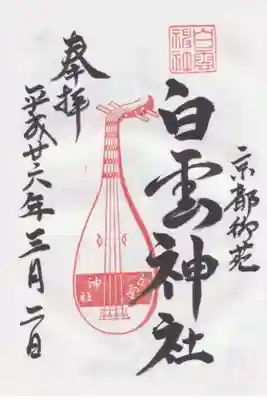 京都御苑
白雲神社
白雲神社
白雲神社
奉拝
平成廿六年三月二日